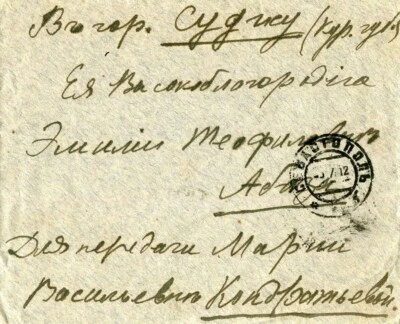 Въ гор. Суджу (Кур. губ.)
Ея Высокоблагородiю
Эмилiи Теофиловнѣ
Для передачи Марiи
Васильевнѣ Кондратьевой.
СЕВАСТОПОЛЬ
7 12